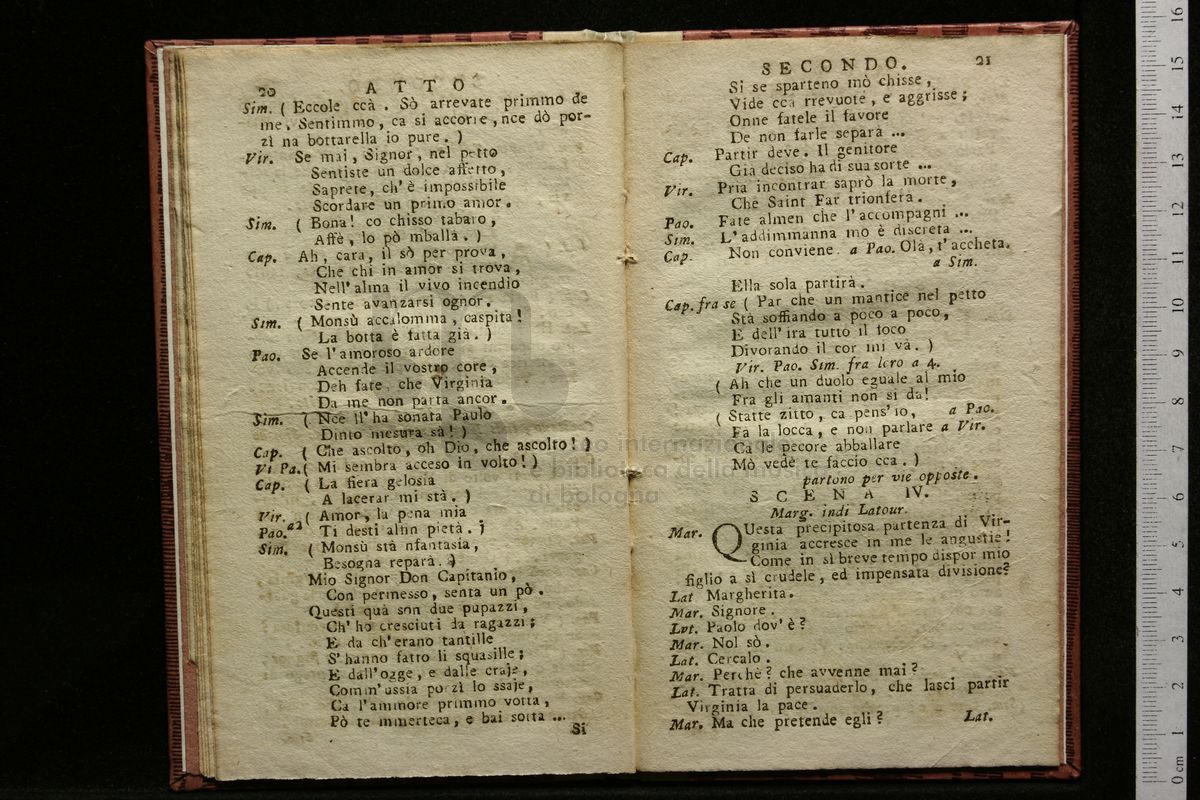 20 ATTO
Sim. ( Eccole ccà . Sò arrevate primmo de
me. Sentimmo, ca si accorre, nce dò por-
zì na bottarella io pure. )
Vir. Se mai, Signor, nel petto
Sentiste un dolce affetto,
Saprete, ch' è impossibile
Scordare un primo amor.
Sim. ( Bona! co chisso tabaro,
Affè, lo pò mballà. )
Cap. Ah, cara, il sò per prova,
Che chi in amor si trova,
Nell' alma il vivo incendio
Sente avanzarsi ognor.
Sim. ( Monsù accalomma, caspita!
La botta è fatta già. )
Pao. Se l'amoroso ardore
Accende il vostro core,
Deh fate, che Virginia
Da me non parta ancor.
Sim. ( Nce ll' ha sonata Paulo
Dinto mesura sà! )
Cap. ( Che ascolto, oh Dio, che ascolto! )
Vi Pa. ( Mi sembra acceso in volto! )
Cap. ( La fiera gelosia
A lacerar mi stà. )
Vir. ( Amor, la pena mia
Pao. a2 Ti desti alfin pietà. )
Sim. ( Monsù stà nfantasia,
Besogna reparà. )
Mio Signor Don Capitanio,
Con permesso, senta un pò.
Questi quà son due pupazzi,
Ch' ho cresciuti da ragazzi;
E da ch' erano tantille
S' hanno fatto li squasille;
E dall' ogge, e dalle craje,
Comm' ussia porzì lo ssaje,
Ca l'ammore primmo votta,
Pò te mmerteca, e bai sotta ...
Si
SECONDO. 21
Si se sparteno mò chisse,
Vide ccà rrevuote, e aggrisse;
Onne fatele il favore
De non farle separà ...
Cap. Partir deve. Il genitore
Già deciso ha di sua sorte ...
Vir. Pria incontrar saprò la morte,
Che Saint Far trionferà.
Pao. Fate almen che l'accompagni ...
Sim. L'addimmanna mo è discreta ...
Cap. Non conviene. a Pao. Olà, t'accheta.
a Sim.
Ella sola partirà.
Cap. fra se ( Par che un mantice nel petto
Stà soffiando a poco a poco,
E dell' ira tutto il foco
Divorando il cor mi và. )
Vir. Pao. Sim. fra loro a 4.
( Ah che un duolo eguale al mio
Fra gli amanti non si dà!
( Statte zitto, ca pens' io, a Pao.
Fa la locca, e non parlare a Vir.
Ca le pecore abballare
Mò vedè te faccio cca. )
partono per vie opposte.
SCENA IV.
Marg. indi Latour.
Mar. QUesta precipitosa partenza di Vir-
ginia accresce in me le angustie!
Come in sì breve tempo dispor mio
figlio a sì crudele, ed impensata divisione?
Lat Margherita.
Mar. Signore.
Lat. Paolo dov' è?
Mar. Nol sò.
Lat. Cercalo.
Mar. Perchè? che avvenne mai?
Lat. Tratta di persuaderlo, che lasci partir
Virginia la pace.
Mar. Ma che pretende egli?
Lat.